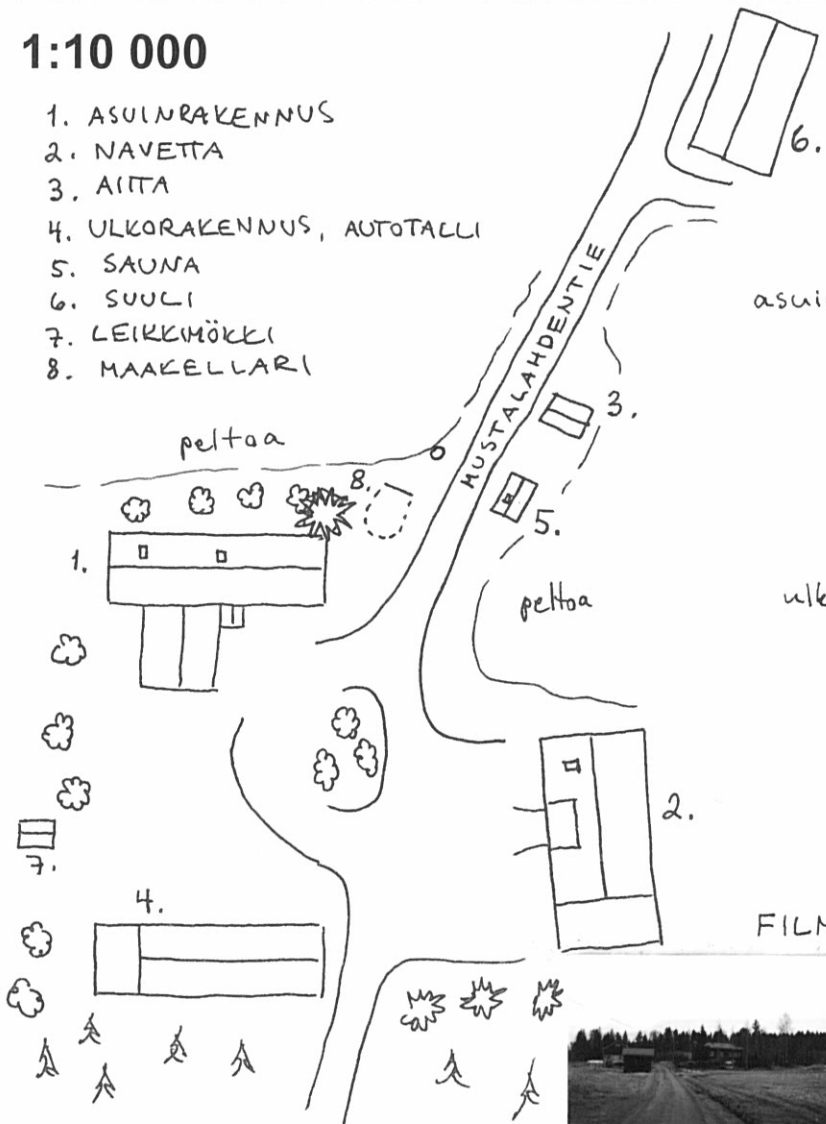 1:10 000
1. ASUINRAKENNUS
2. NAVETTA
3. AITTA
4. ULKORAKENNUS, AUTOTALLI
5. SAUNA
6. SUULI
7. LEIKKIMÖKKI
8. MAAKELLARI
6.
asui
MUSTALAHDENTIE
3.
peltoa
8.
5.
1.
peltoa
ulk
2.
7.
4.
FILM